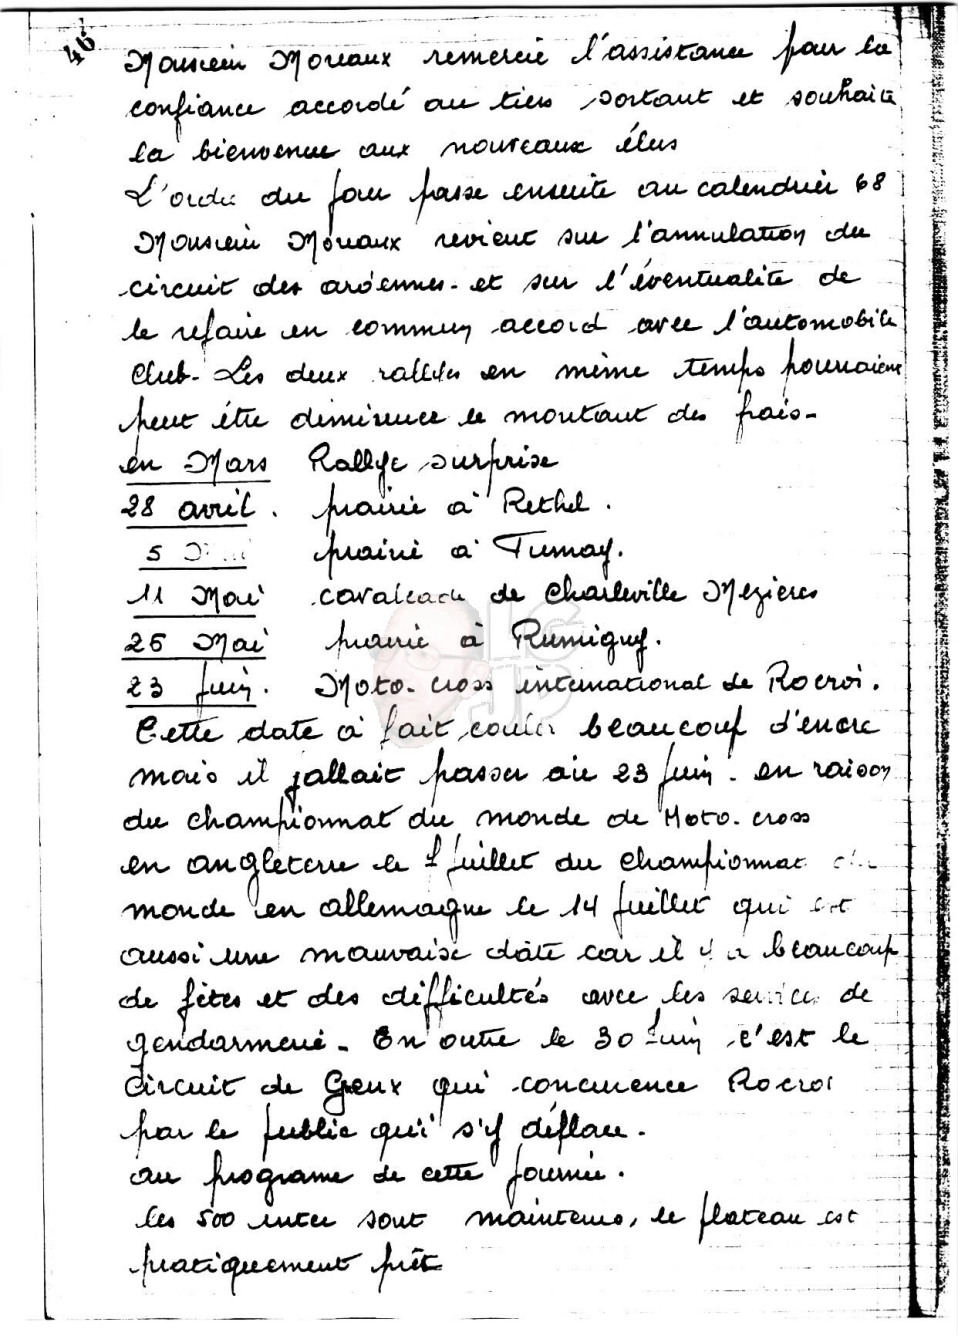 46
Monsieur Moreaux remercie l'assistance pour la
confiance accordé au tiers sortant et souhaite
la bienvenue aux nouveaux élus
L'ordre du jour passe ensuite au calendrier 68
Monsieur Moreaux revient sur l'annulation du
circuit des ardennes - et sur l'éventualité de
le refaire en commun accord avec l'automobile
Club - Les deux rallyes en même temps pourraient
peut être diminuer le montant des frais -
en Mars Rallye surprise
28 avril . prairie à Rethel .
5 prairie à Tumay.
11 Mai cavalcade de Charleville Mezières
26 Mai prairie à Rumigny.
23 juin . Moto-cross international de Rocroi .
Cette date à fait couler beaucoup d'encre
mais il fallait passer au 23 juin - en raison
du championnat du monde de Moto-cross
en angleterre le 7 juillet du championnat du
monde en allemagne le 14 juillet qui est
aussi une mauvaise date car il y a beaucoup
de fêtes et des difficultés avec les services de
gendarmerie - En outre le 30 Juin c'est le
circuit de Gueux qui concurence Rocroi
par le public qui s'y déplace .
au programe de cette journée .
les 500 inter sont maintenus, le plateau est
pratiquement prêt
LSC
JP